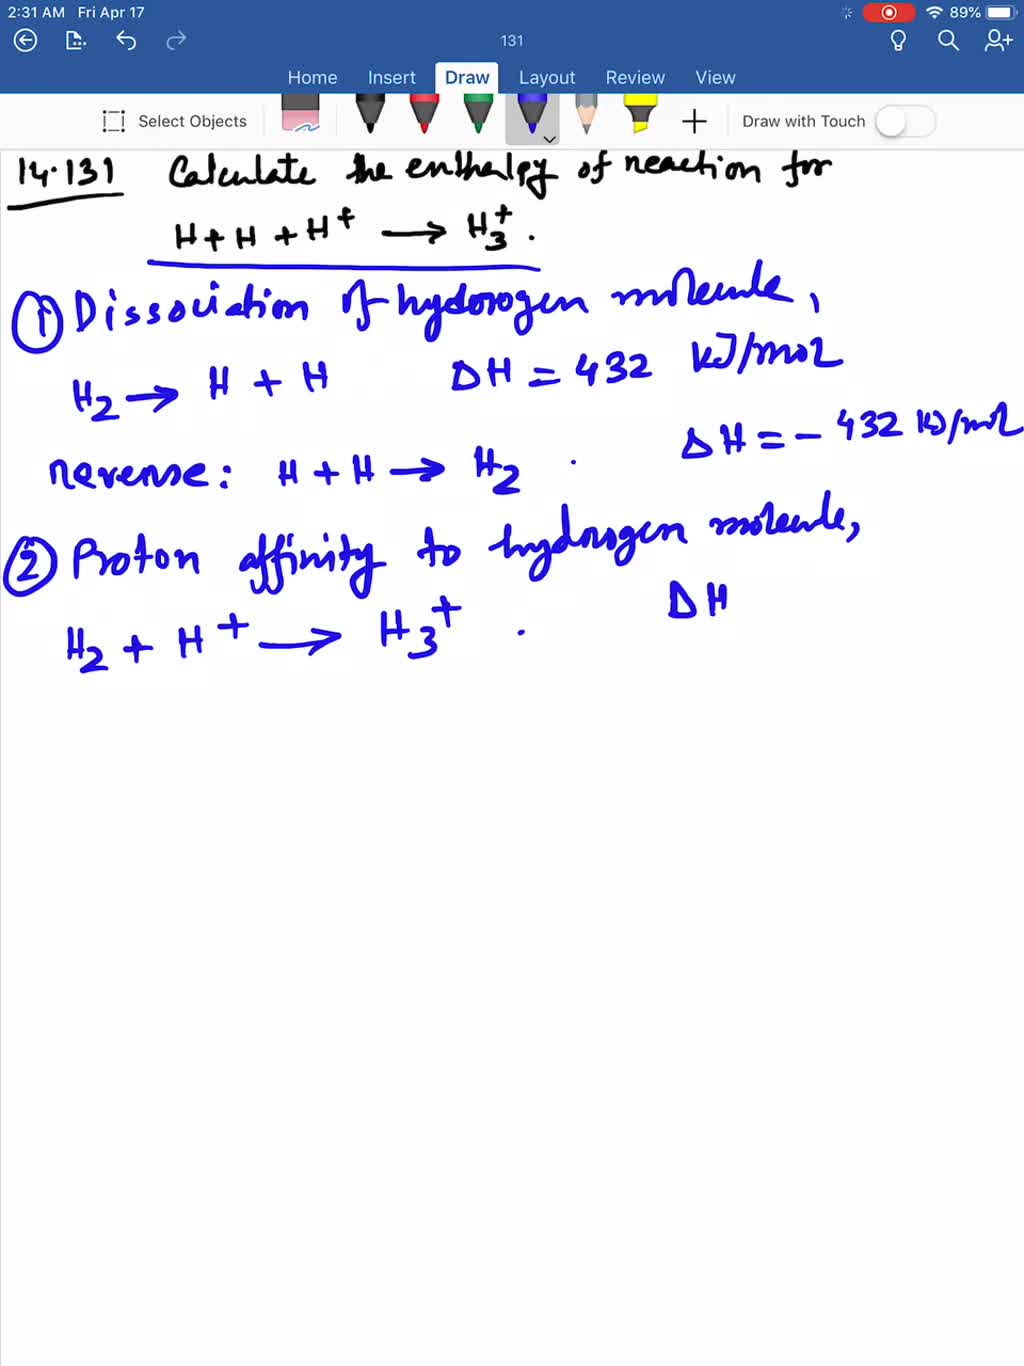 2:31 AM Fri Apr 17 89%
131
Home Insert Draw Layout Review View
Select Objects Draw with Touch
14.131 Calculate the enthalpy of reaction for
H + H + H⁺ → H₃⁺.
① Dissociation of hydrogen molecule,
H₂ → H + H ΔH = 432 kJ/mol
reverse: H + H → H₂. ΔH = - 432 kJ/mol
② Proton affinity to hydrogen molecule,
H₂ + H⁺ → H₃⁺. ΔH